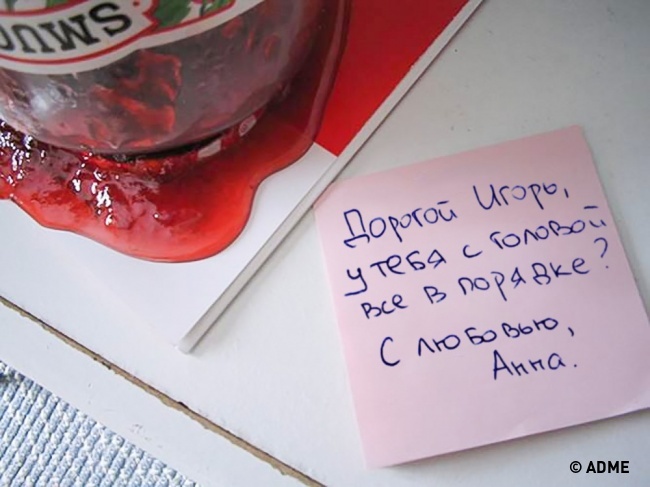 SMUC
Дорогой Игорь,
у тебя с головой
все в порядке?
С любовью,
Анна.
© ADME